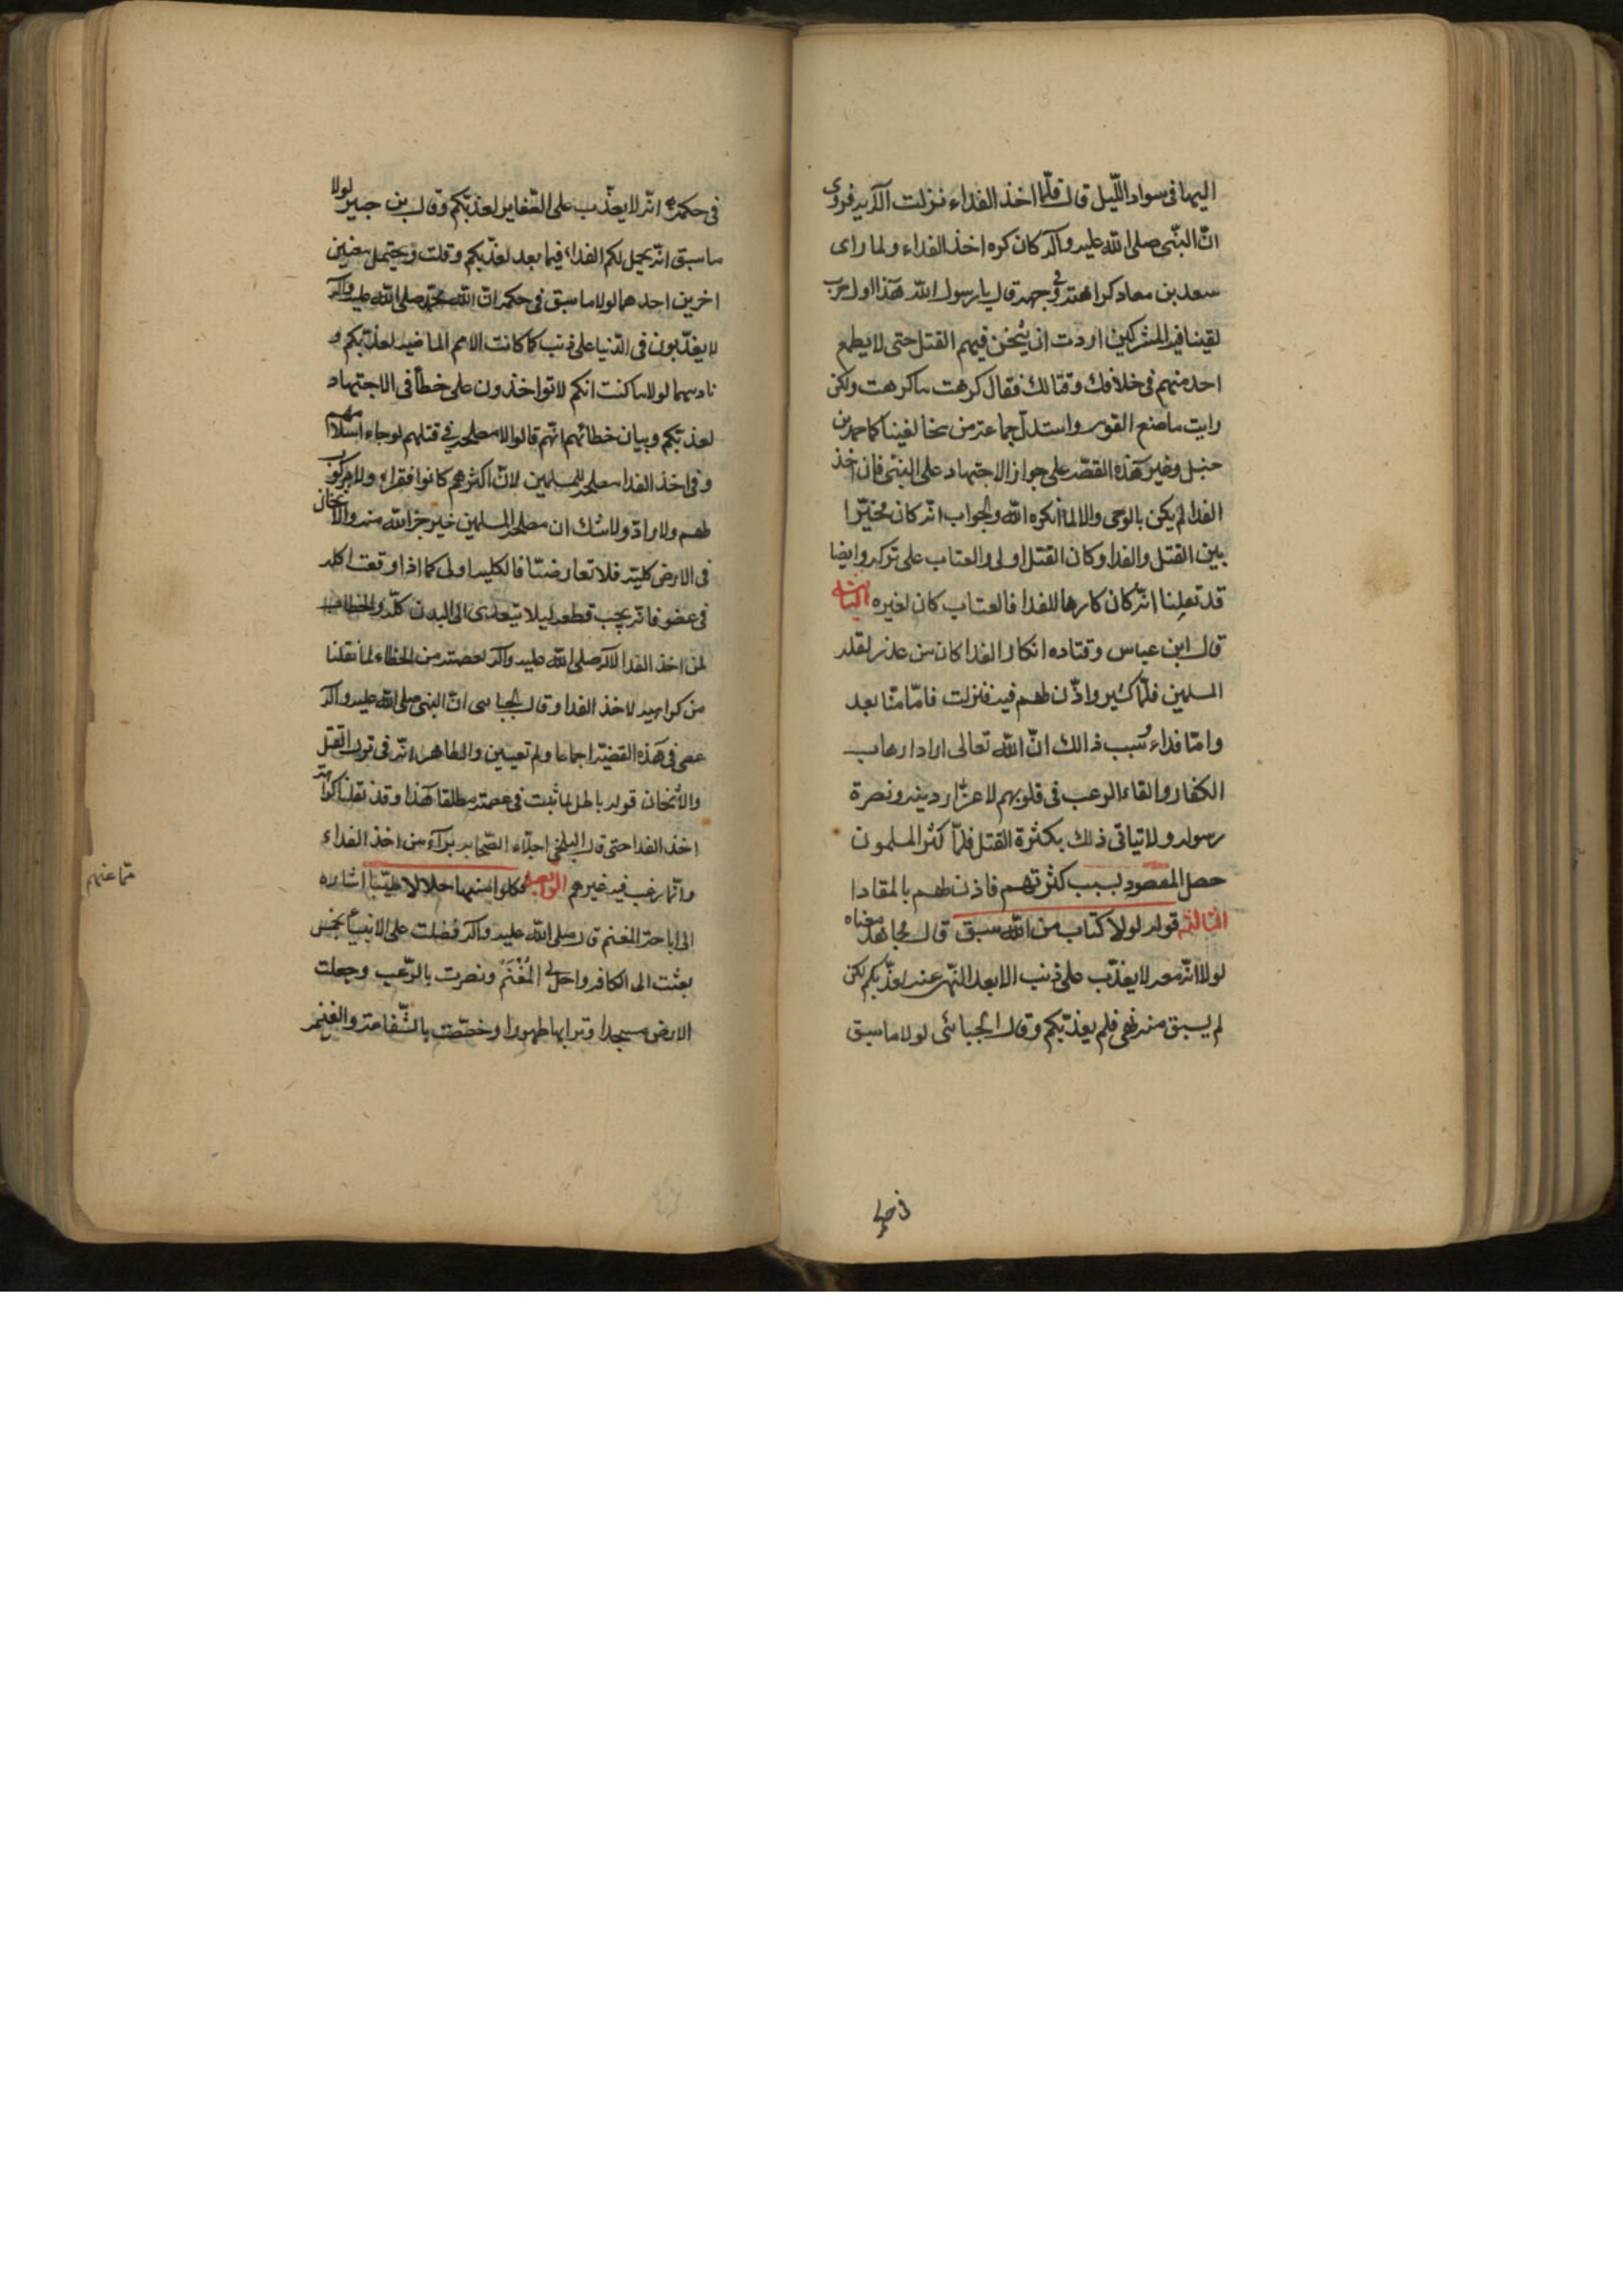 اليها فى سواد اللّيل قال فلمّا اخذ الفداء فنزلت الآيه فروى
انّ النبّى صلى الله عليه وآله كان كره اخذ الفداء ولما راى
سعد بن معاد كراهته فى وجهه قال يا رسول الله هذا اول حرب
لقينا فيه المشركين اردت ان يُثخن فيهم القتل حتى لا يطمع
احد منهم فى خلافك وقتالك فقال كرهت ما كرهت ولكن
رايت ما صنع القوم واستدلّ جماعة من مخالفينا كاحمد بن
حنبل وغيره هذه القصّه على جواز الاجتهاد على النبّى فان اخذ
الفدا لم يكن بالوحى والا لما انكره الله والجواب انه كان مخيّرا
بين القتل والفدا وكان القتل اولى والعتاب على تركه وايضا
قد نقلنا انّه كان كارها للفدا فالعتاب كان لغيره الثانيه
قال ابن عباس وقتاده انكار الفدا كان من عذر لقله
المسلمين فلمّا كثير واذّن لهم فيه فنزلت فامّا منّا بعد
وامّا فداء وسبب ذالك انّ الله تعالى اراد ارهاب
الكفار والقاء الرعب فى قلوبهم لاعزاز دينه ونصرة
رسوله ولا تياتى ذلك بكثرة القتل فلمّا كثر المسلمون
حصل المقصود بسبب كثرتهم فاذن لهم بالمقادا
الثالثه قوله لولا كتاب من الله سبق قال مجاهد معناه
لولا انّه معه لا يعذّب على ذنب الا بعد النّهى عنه لعذّبكم لكن
لم يسبق منه نهى فلم يعذّبكم وقال الجبائى لولا ما سبق
فى حكمه انّه لا يعذّب على الصّغاير لعذبّكم وقال بن جبير لولا
ما سبق انّه يحل لكم الفداء فيما بعد لعذّبكم وقلت ويحتمل معنيين
اخرين احدهما لولا ما سبق فى حكمه انّ الله محمّد صلى الله عليه وآله
لا يعذّبون فى الدّنيا على ذنب كما كانت الامم الماضيه لعذّبكم و
ثانيهما لولا ما كنت انكم لا تواخذون على خطأ فى الاجتهاد
لعذبّكم وبيان خطائهم انّهم قالوا لا مصلحه فى قتلهم لوجاء اسلامهم
وفى اخذ الفدا مصلحة للمسلمين لانّ اكثرهم كانوا فقراء ولا مركوب
لهم ولا زادّ ولا شك ان مصلحة المسلمين خير جزائه منه والاثخان
فى الارض كليّه فلا تعارضتا فالكليه اولى كما اذا وقعت اكله
فى عضو فانه يجب قطعه ليلا يتعدى الى البدن كلّه والخطاب
لمن اخذ الفدا لا له صلى الله عليه وآله لعصمته من الخطاء لما نقلنا
من كراهيه لاخذ الفدا وقال الجبائى انّ النبى صلى الله عليه وآله
عصى فى هذه القضيّه اجماعا ولم تعيين والظاهر انّه فى ترك القتل
والاثخان قوله باطل لما ثبت فى عصمته مطلقا هذا وقد نقلنا كراهته
اخذ الفدا حتى قال البلخى اجلّاء الصّحابه برآء من اخذ الفداء
وانّما رغب فيه غيرهم الرابعه فكلوا منها حلالا طيّبا اشاره
الى اباحة المغنم قال صلى الله عليه وآله فضلت على الانبياء بخمس
بعثت الى الكافه واحل لى المُغْنَمْ ونصرت بالرّعب وجعلت
الارض مسجدا وترابها طهورا وخصّصت بالشّفاعة والغنم